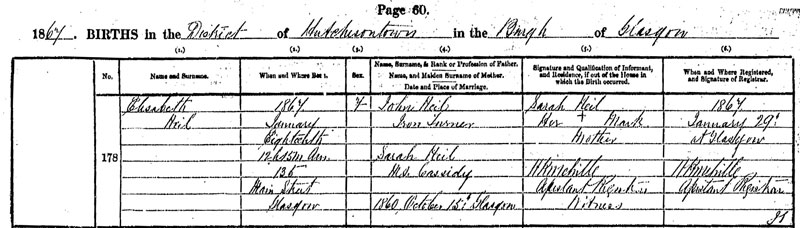 Page 60.
1867. BIRTHS in the District of Hutchesontown in the Burgh of Glasgow
(1.) (2.) (3.) (4.) (5.) (6.)
No. Name and Surname. When and Where Born. Sex. Name, Surname, & Rank or Profession of Father. Name, and Maiden Surname of Mother. Date and Place of Marriage. Signature and Qualification of Informant, and Residence, if out of the House in which the Birth occurred. When and Where Registered, and Signature of Registrar.
178
Elisabeth
Neil
1867
January
Eighteenth
12h 15m A.M.
135
Main Street
Glasgow
F
John Neil
Iron Turner
Sarah Neil
M.S. Cassidy
1860, October 15th Glasgow
Sarah Neil
Her + Mark
Mother
Assistant Registrar
Witness
1867
January 29th
At Glasgow
Assistant Registrar